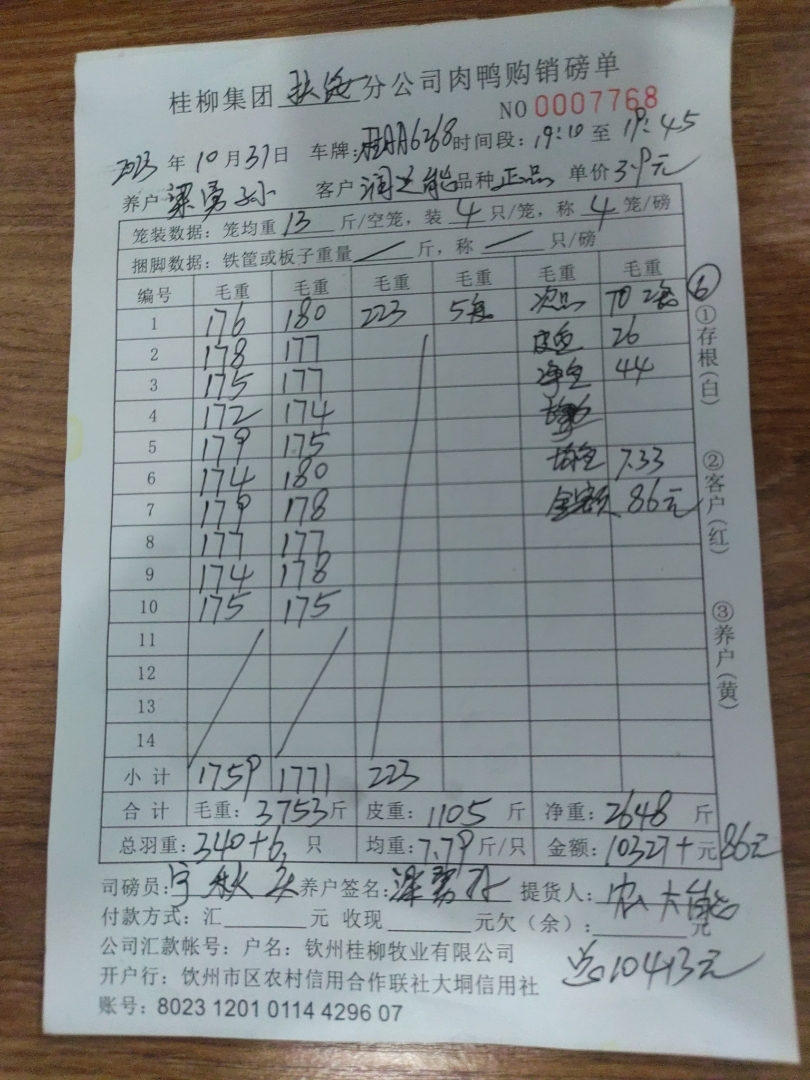 桂柳集团 扶绥 分公司肉鸭购销磅单
NO 0007768
2023年10月31日 车牌: 时间段: 19:10 至 19:45
养户 梁勇孙 客户 品种 正品 单价 3.9元
笼装数据: 笼均重 13 斤/空笼, 装 4 只/笼, 称 4 笼/磅
捆脚数据: 铁筐或板子重量 / 斤, 称 / 只/磅
编号 毛重 毛重 毛重 毛重 毛重 毛重
1 176 180 223 5笼 次品 70 2笼 ⑥
2 178 177 皮重 26
3 175 177 净重 44
4 172 174
5 179 175
6 174 180 均重 7.33
7 179 178 金额 86元
8 177 177
9 174 178
10 175 175
11
12
13
14
小计 1759 1771 223
合计 毛重: 3753斤 皮重: 1105 斤 净重: 2648 斤
总羽重: 340+6 只 均重: 7.79斤/只 金额: 10327+元 86元
司磅员: 养户签名: 提货人:
付款方式: 汇 元 收现 元欠(余): 元
公司汇款帐号: 户名: 钦州桂柳牧业有限公司
开户行: 钦州市区农村信用合作联社大垌信用社
总10413元
账号: 8023 1201 0114 4296 07
①存根(白) ②客户(红) ③养户(黄)